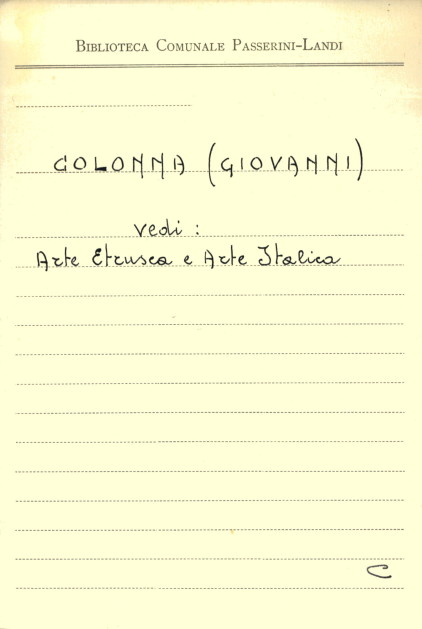 Biblioteca Comunale Passerini-Landi
COLONNA (GIOVANNI)
vedi :
Arte Etrusca e Arte Italica
C